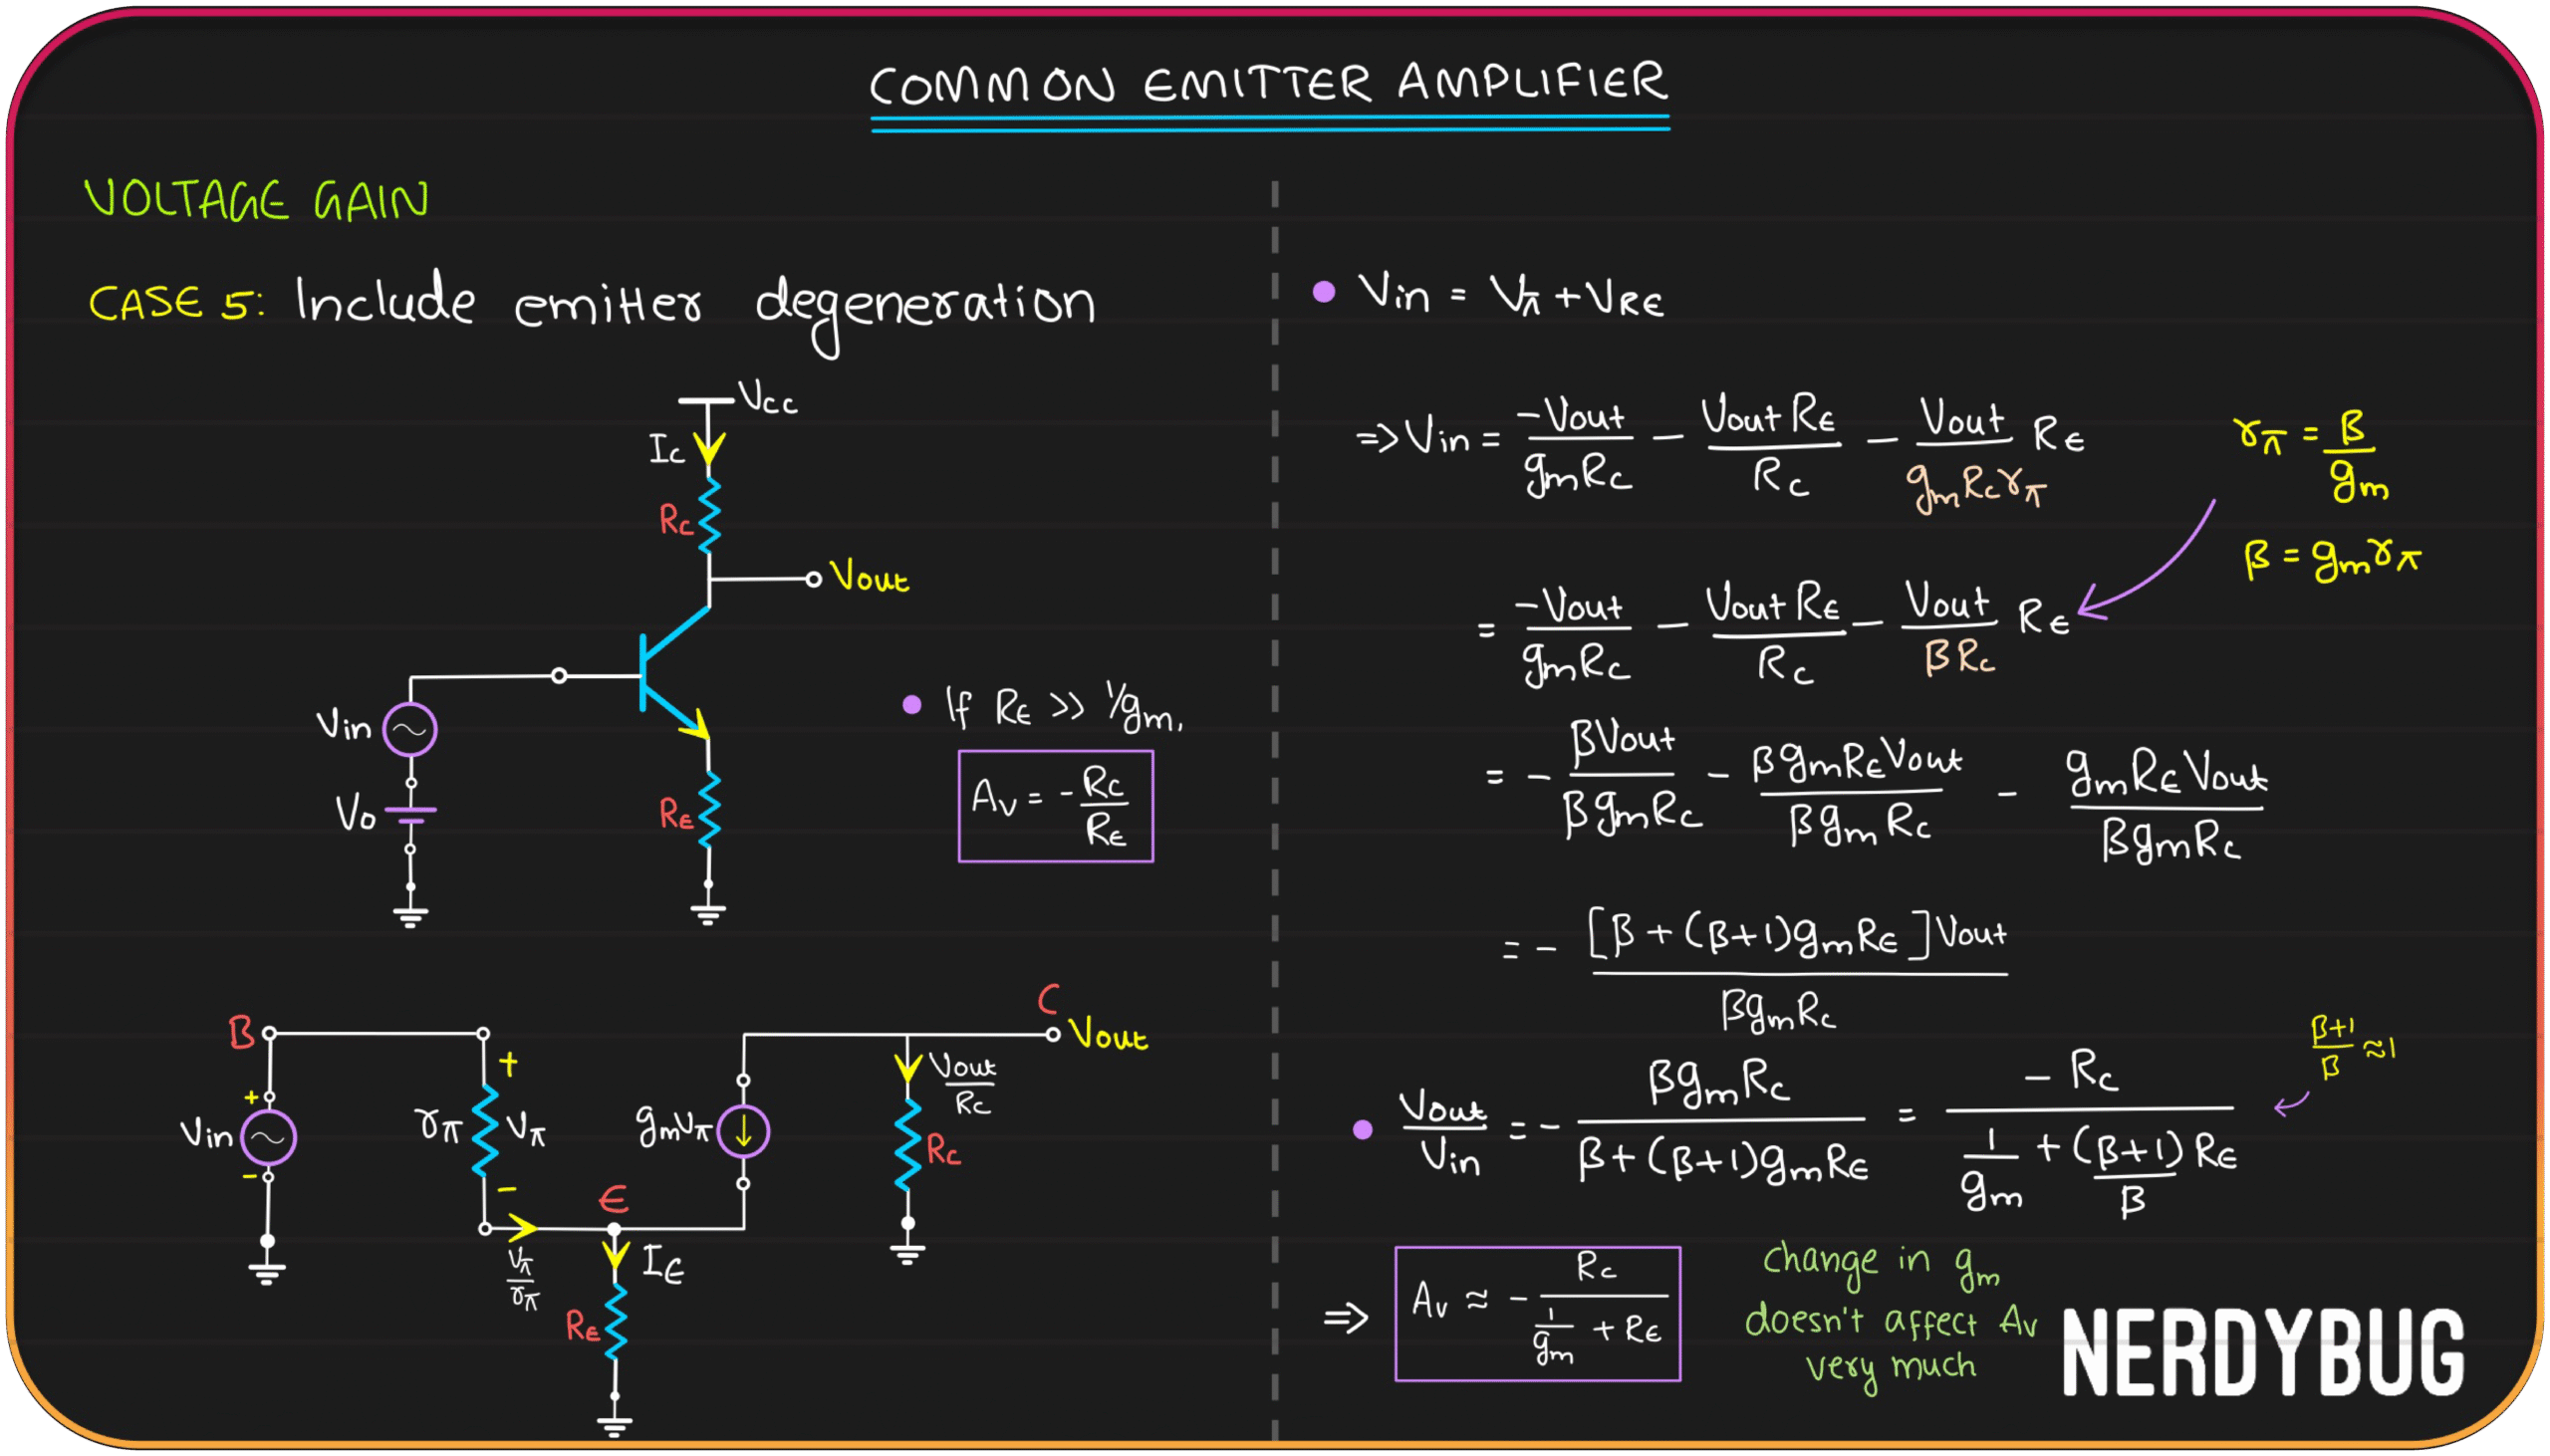 COMMON EMITTER AMPLIFIER
VOLTAGE GAIN
CASE 5: Include emitter degeneration
Vcc
Ic
Rc
Vout
Vin
Vo
RE
• If RE >> 1/gm,
Av = - Rc/RE
B
+
Vin
-
+
rπ
Vπ
-
Vπ/rπ
E
IE
RE
gmVπ
Vout/Rc
Rc
C
Vout
• Vin = Vπ + VRE
=> Vin = -Vout/gmRc - VoutRE/Rc - Vout/gmRcrπ RE
rπ = β/gm
β = gmrπ
= -Vout/gmRc - VoutRE/Rc - Vout/βRc RE
= - βVout/βgmRc - βgmREVout/βgmRc - gmREVout/βgmRc
= - [β + (β+1)gmRE]Vout/βgmRc
β+1/β ≈ 1
• Vout/Vin = - βgmRc/β+(β+1)gmRE = -Rc/1/gm + (β+1)/β RE
=> Av ≈ - Rc/1/gm + RE
change in gm
doesn't affect Av
very much
NERDYBUG